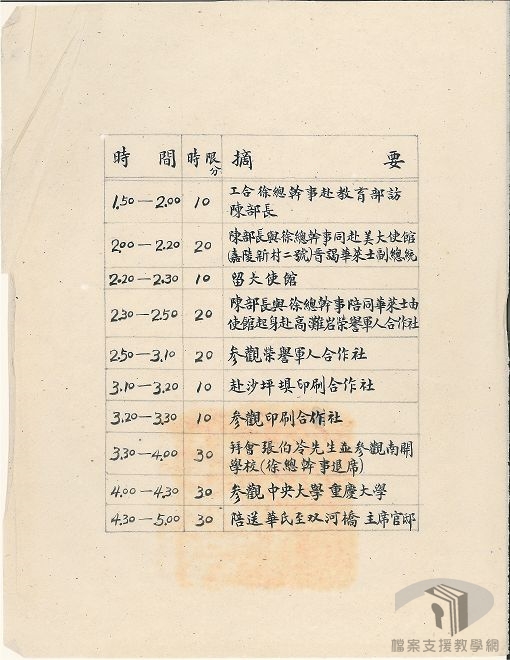 時間 時限分 摘要
1.50—2.00 10 工合徐總幹事赴教育部訪
陳部長
2.00—2.20 20 陳部長與徐總幹事同赴美大使館
(嘉陵新村二號)晉謁華萊士副總統
2.20—2.30 10 留大使館
2.30—2.50 20 陳部長與徐總幹事陪同華萊士由
使館起身赴高灘岩榮譽軍人合作社
2.50—3.10 20 參觀榮譽軍人合作社
3.10—3.20 10 赴沙坪埧印刷合作社
3.20—3.30 10 參觀印刷合作社
3.30—4.00 30 拜會張伯苓先生並參觀南開
學校(徐總幹事退席)
4.00—4.30 30 參觀中央大學重慶大學
4.30—5.00 30 陪送華氏至双河橋主席官邸
檔案支援教學網